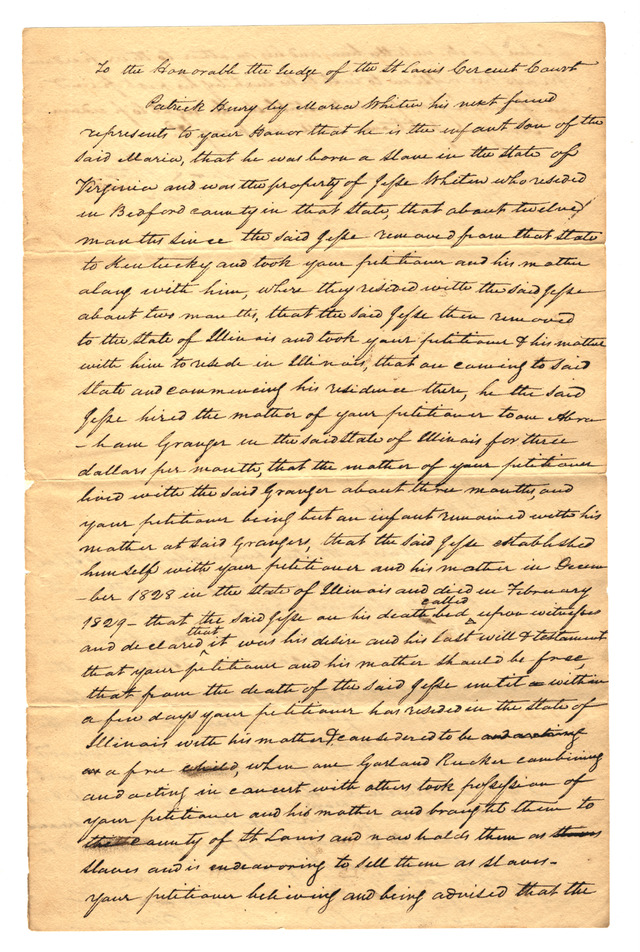 To the Honorable the Judge of the St Louis Circuit Court
Patrick Henry by Maria Whiten his next friend
represents to your Honor that he is the infant son of the
said Maria, that he was born a slave in the state of
Virginia and was the property of Jesse Whiten who resided
in Bedford county in that State, that about twelve
months since the said Jesse removed from that state
to Kentucky and took your petitioner and his mother
along with him, where they resided with the said Jesse
about two months, that the said Jesse then removed
to the state of Illinois and took your petitioner & his mother
with him to reside in Illinois, that on coming to said
state and commencing his residence there, he the said
Jesse hired the mother of your petitioner to one Abra
-ham Granger in the said state of Illinois for three
dollars per month, that the mother of your petitioner
lived with the said Granger about three months, and
your petitioner being but an infant remained with his
mother at said Grangers, that the said Jesse established
himself with your petitioner and his mother in Decem
-ber 1828 in the state of Illinois and died in February
1829 - that the said Jesse on his death bed called upon witnesses
and declared that it was his desire and his last will & testament
that your petitioner and his mother should be free,
that from the death of the said Jesse until within
a few days your petitioner has resided in the state of
Illinois with his mother & considered to be and acting
as a free child, when one Garland Rucker combining
and acting in concert with others took possession of
your petitioner and his mother and brought them to
the County of St Louis and now holds them as
slaves and is endeavoring to sell them as slaves -
your petitioner believing and being advised that the